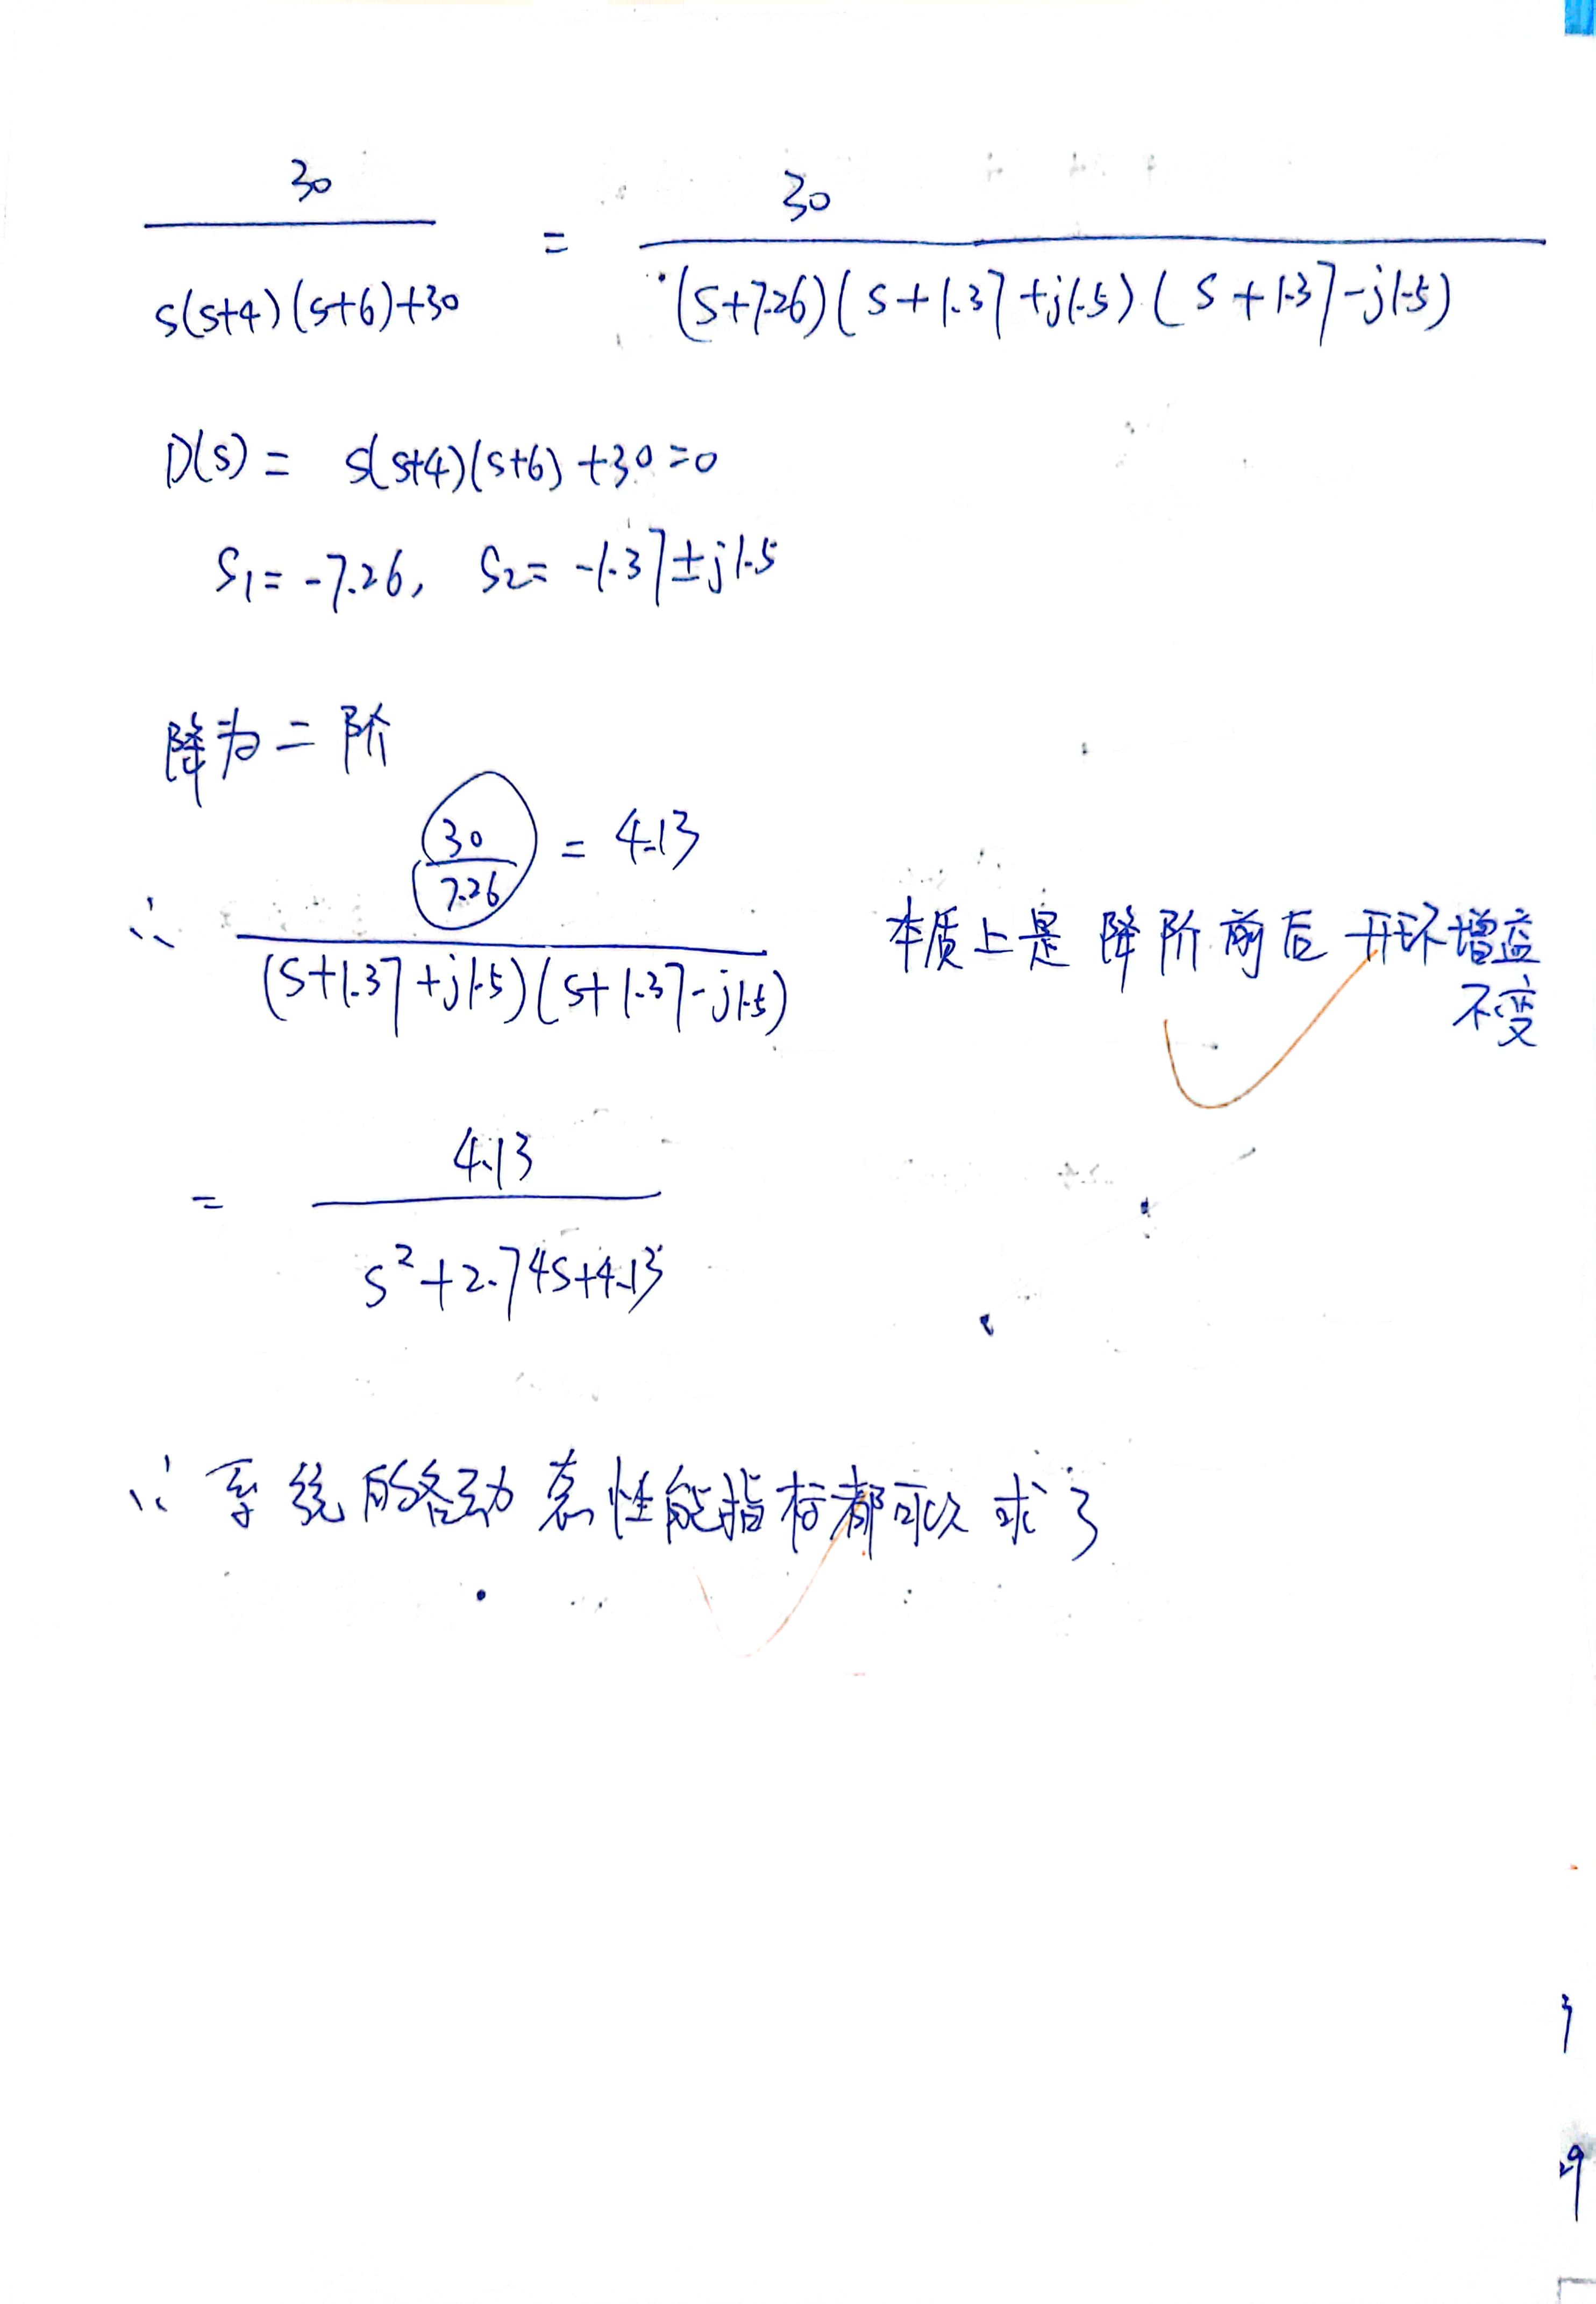 30 / s(s+4)(s+6)+30 = 30 / (s+7.26)(s+1.37+j1.5)(s+1.37-j1.5)
D(s) = s(s+4)(s+6)+30=0
S1=-7.26, S2=-1.37±j1.5
降为二阶
∴ 30/7.26 = 4.13 / (s+1.37+j1.5)(s+1.37-j1.5) 本质上是降阶前后开环增益
不变
= 4.13 / s²+2.74s+4.13
∴ 系统的各动态性能指标都可以求了